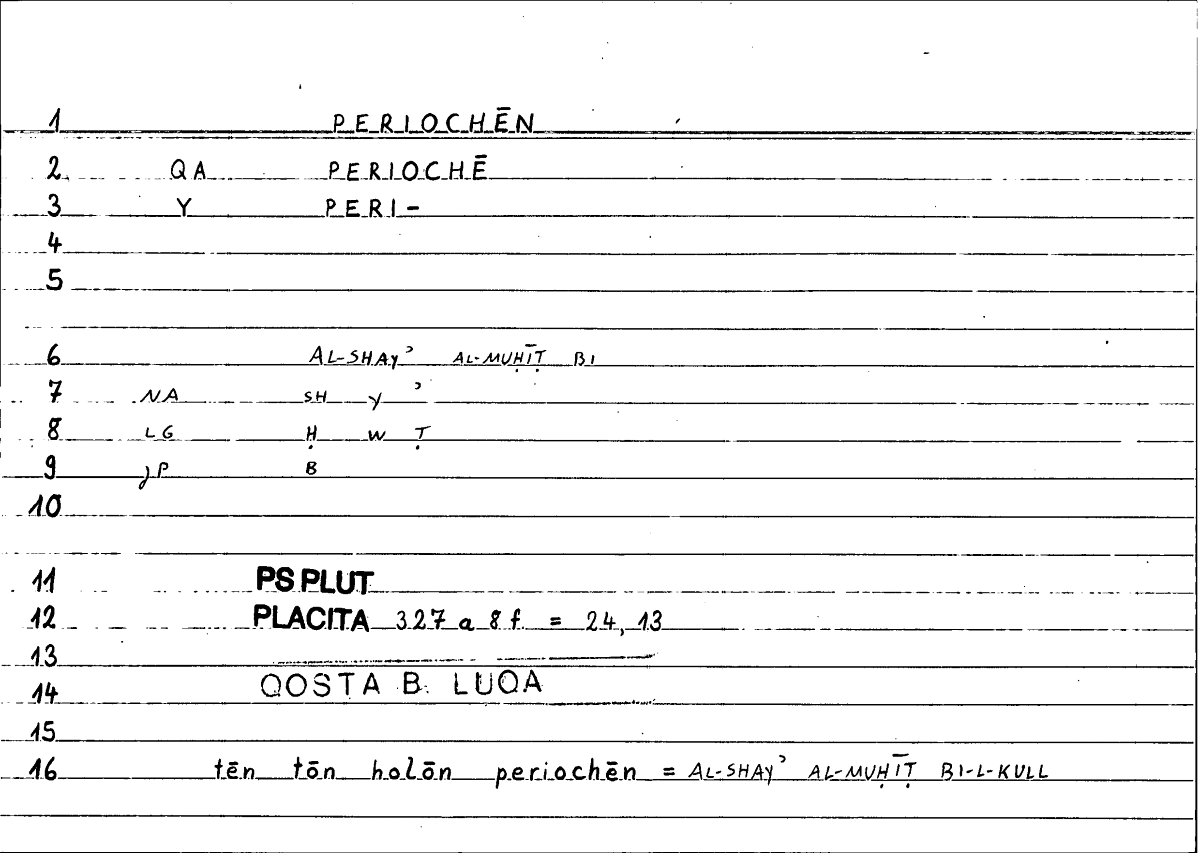 1 PERIOCHĒN
2 QA PERIOCHĒ
3 Y PERI-
4
5
6 AL-SHAYʾ AL-MUḤĪṬ BI
7 NA SH Y ʾ
8 LG Ḥ W Ṭ
9 JP B
10
11 PS PLUT
12 PLACITA 327 a 8 f. = 24,13
13
14 QOSTA B. LUQA
15
16 tēn tōn holōn periochēn = AL-SHAYʾ AL-MUḤĪṬ BI-L-KULL